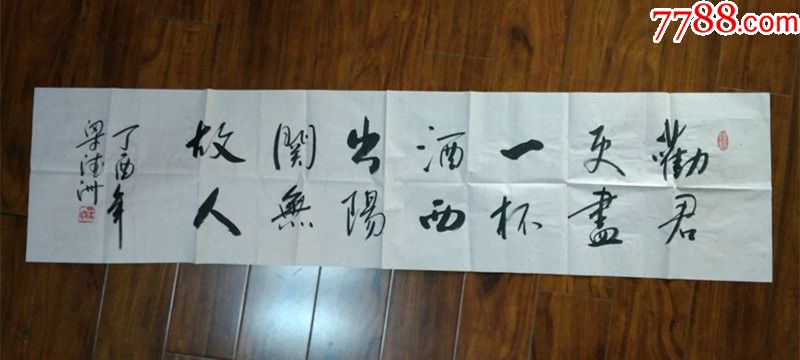 7788.com
勸君
更盡
一杯
酒西
出陽
關無
故人
丁酉年